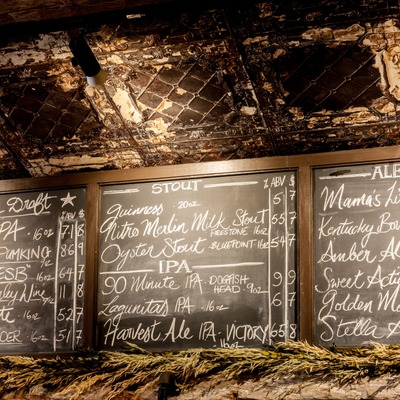 Draft ABV $
PA - 16oz 7 8
PUMKING 8 9
ESB - 16oz 6 7
16oz
CIDER - 16oz 5 7
STOUT % ABV $
Guinness - 20oz 5 7
Nitro Merlin Milk Stout FIRESTONE 16oz 5.5 7
Oyster Stout BLUEPOINT 16oz 5.4 7
IPA
90 Minute IPA - DOGFISH HEAD 9oz 9 9
Lagunitas IPA - 16oz 6 7
Harvest Ale IPA - VICTORY - 16oz 6.5 8
ALE
Mama's Li
Kentucky Bou
Amber Al
Sweet Acti
Golden Mo
Stella A